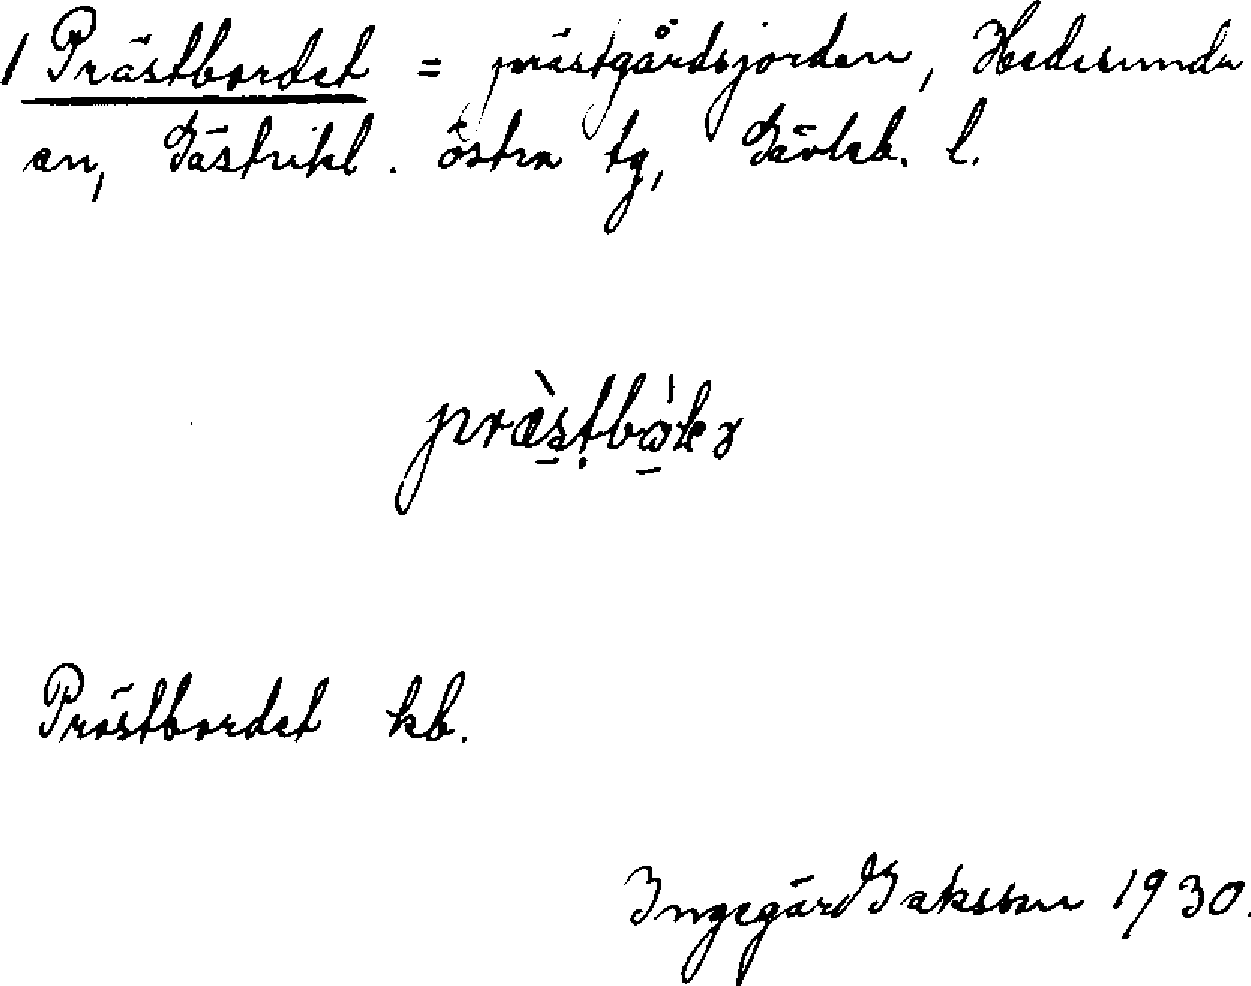 1 Prästbordet = prästgårdsjorden, Hedesunda
sn, Gästrikl. östra tg, Gävleb. l.
Prästbordet kb.
Ingegärd Isaksson 1930.